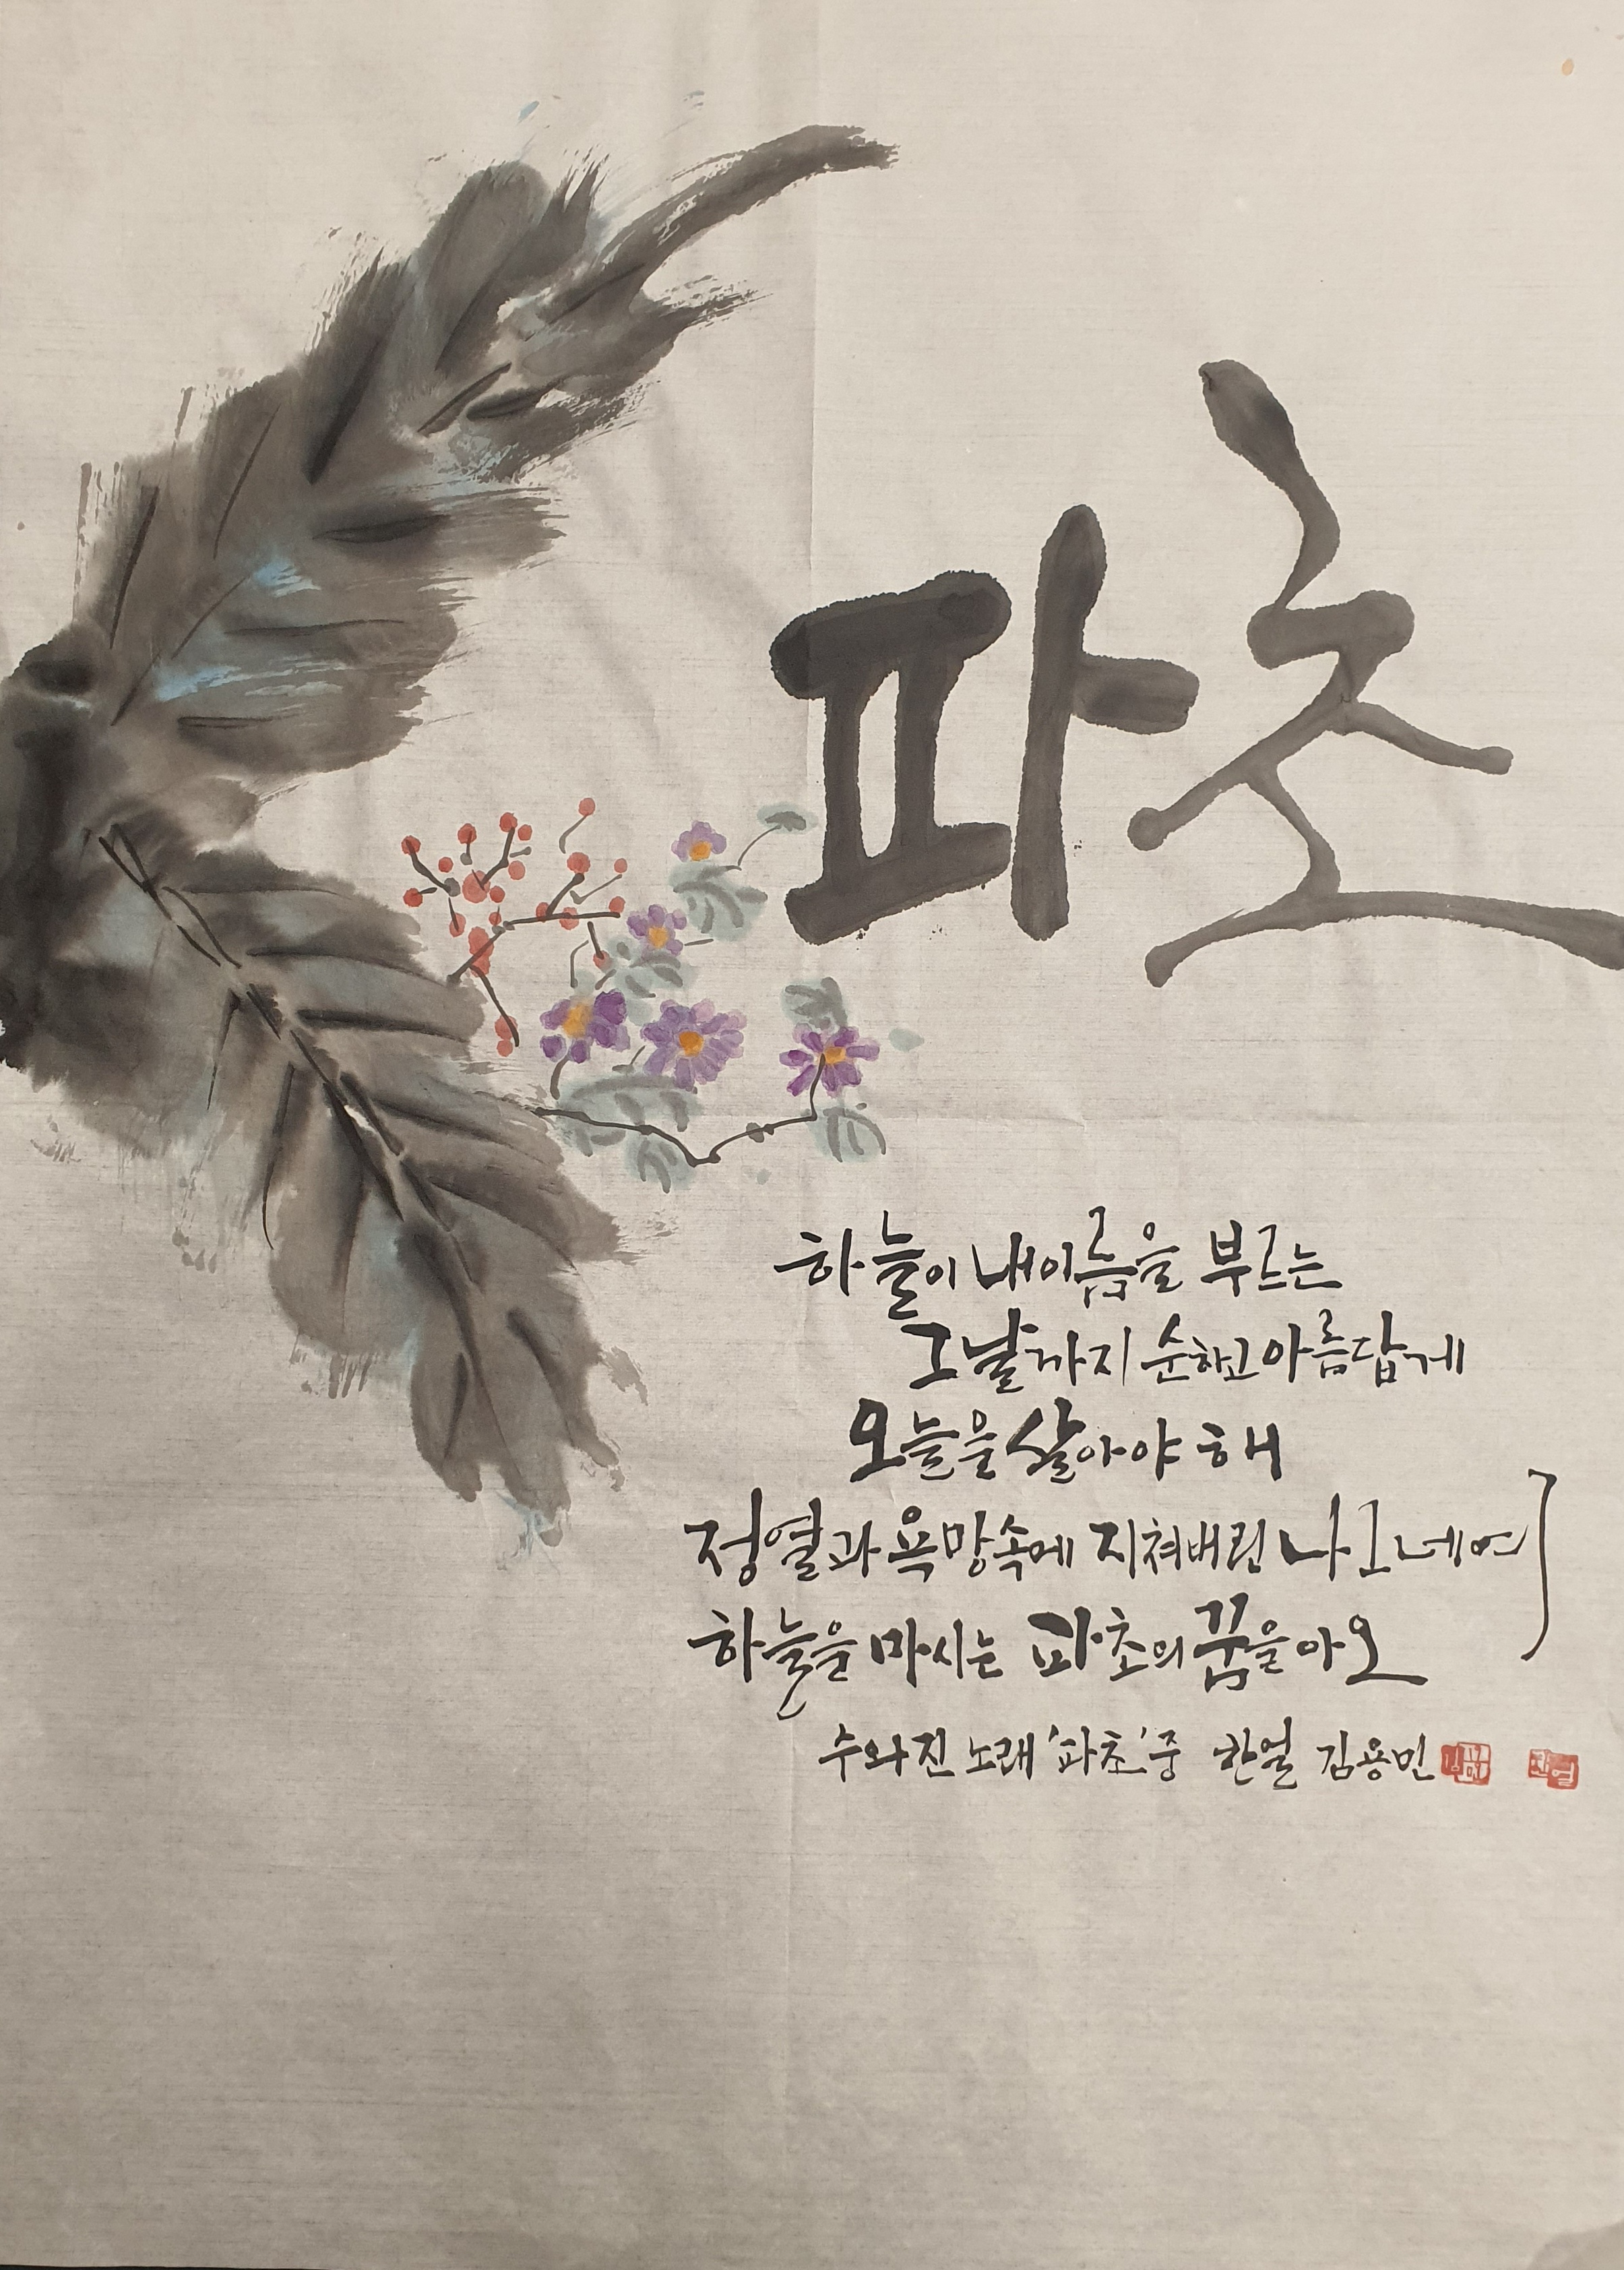 파초
하늘이 내 이름을 부르는
그날까지 순하고 아름답게
오늘을 살아야 해
정열과 욕망속에 지쳐버린 나그네여
하늘을 마시는 파초의 꿈을 아오
수와진 노래 '파초' 중 한얼 김용민